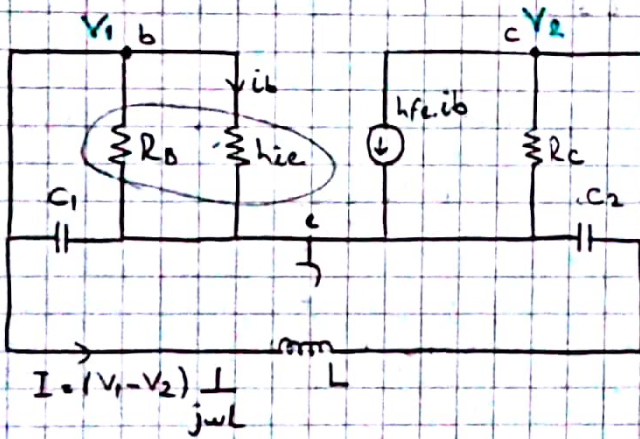 V1 b
c V2
ib
hfe.ib
RB
hie
Rc
C1
e
C2
I = (V1-V2) 1/jωL
L